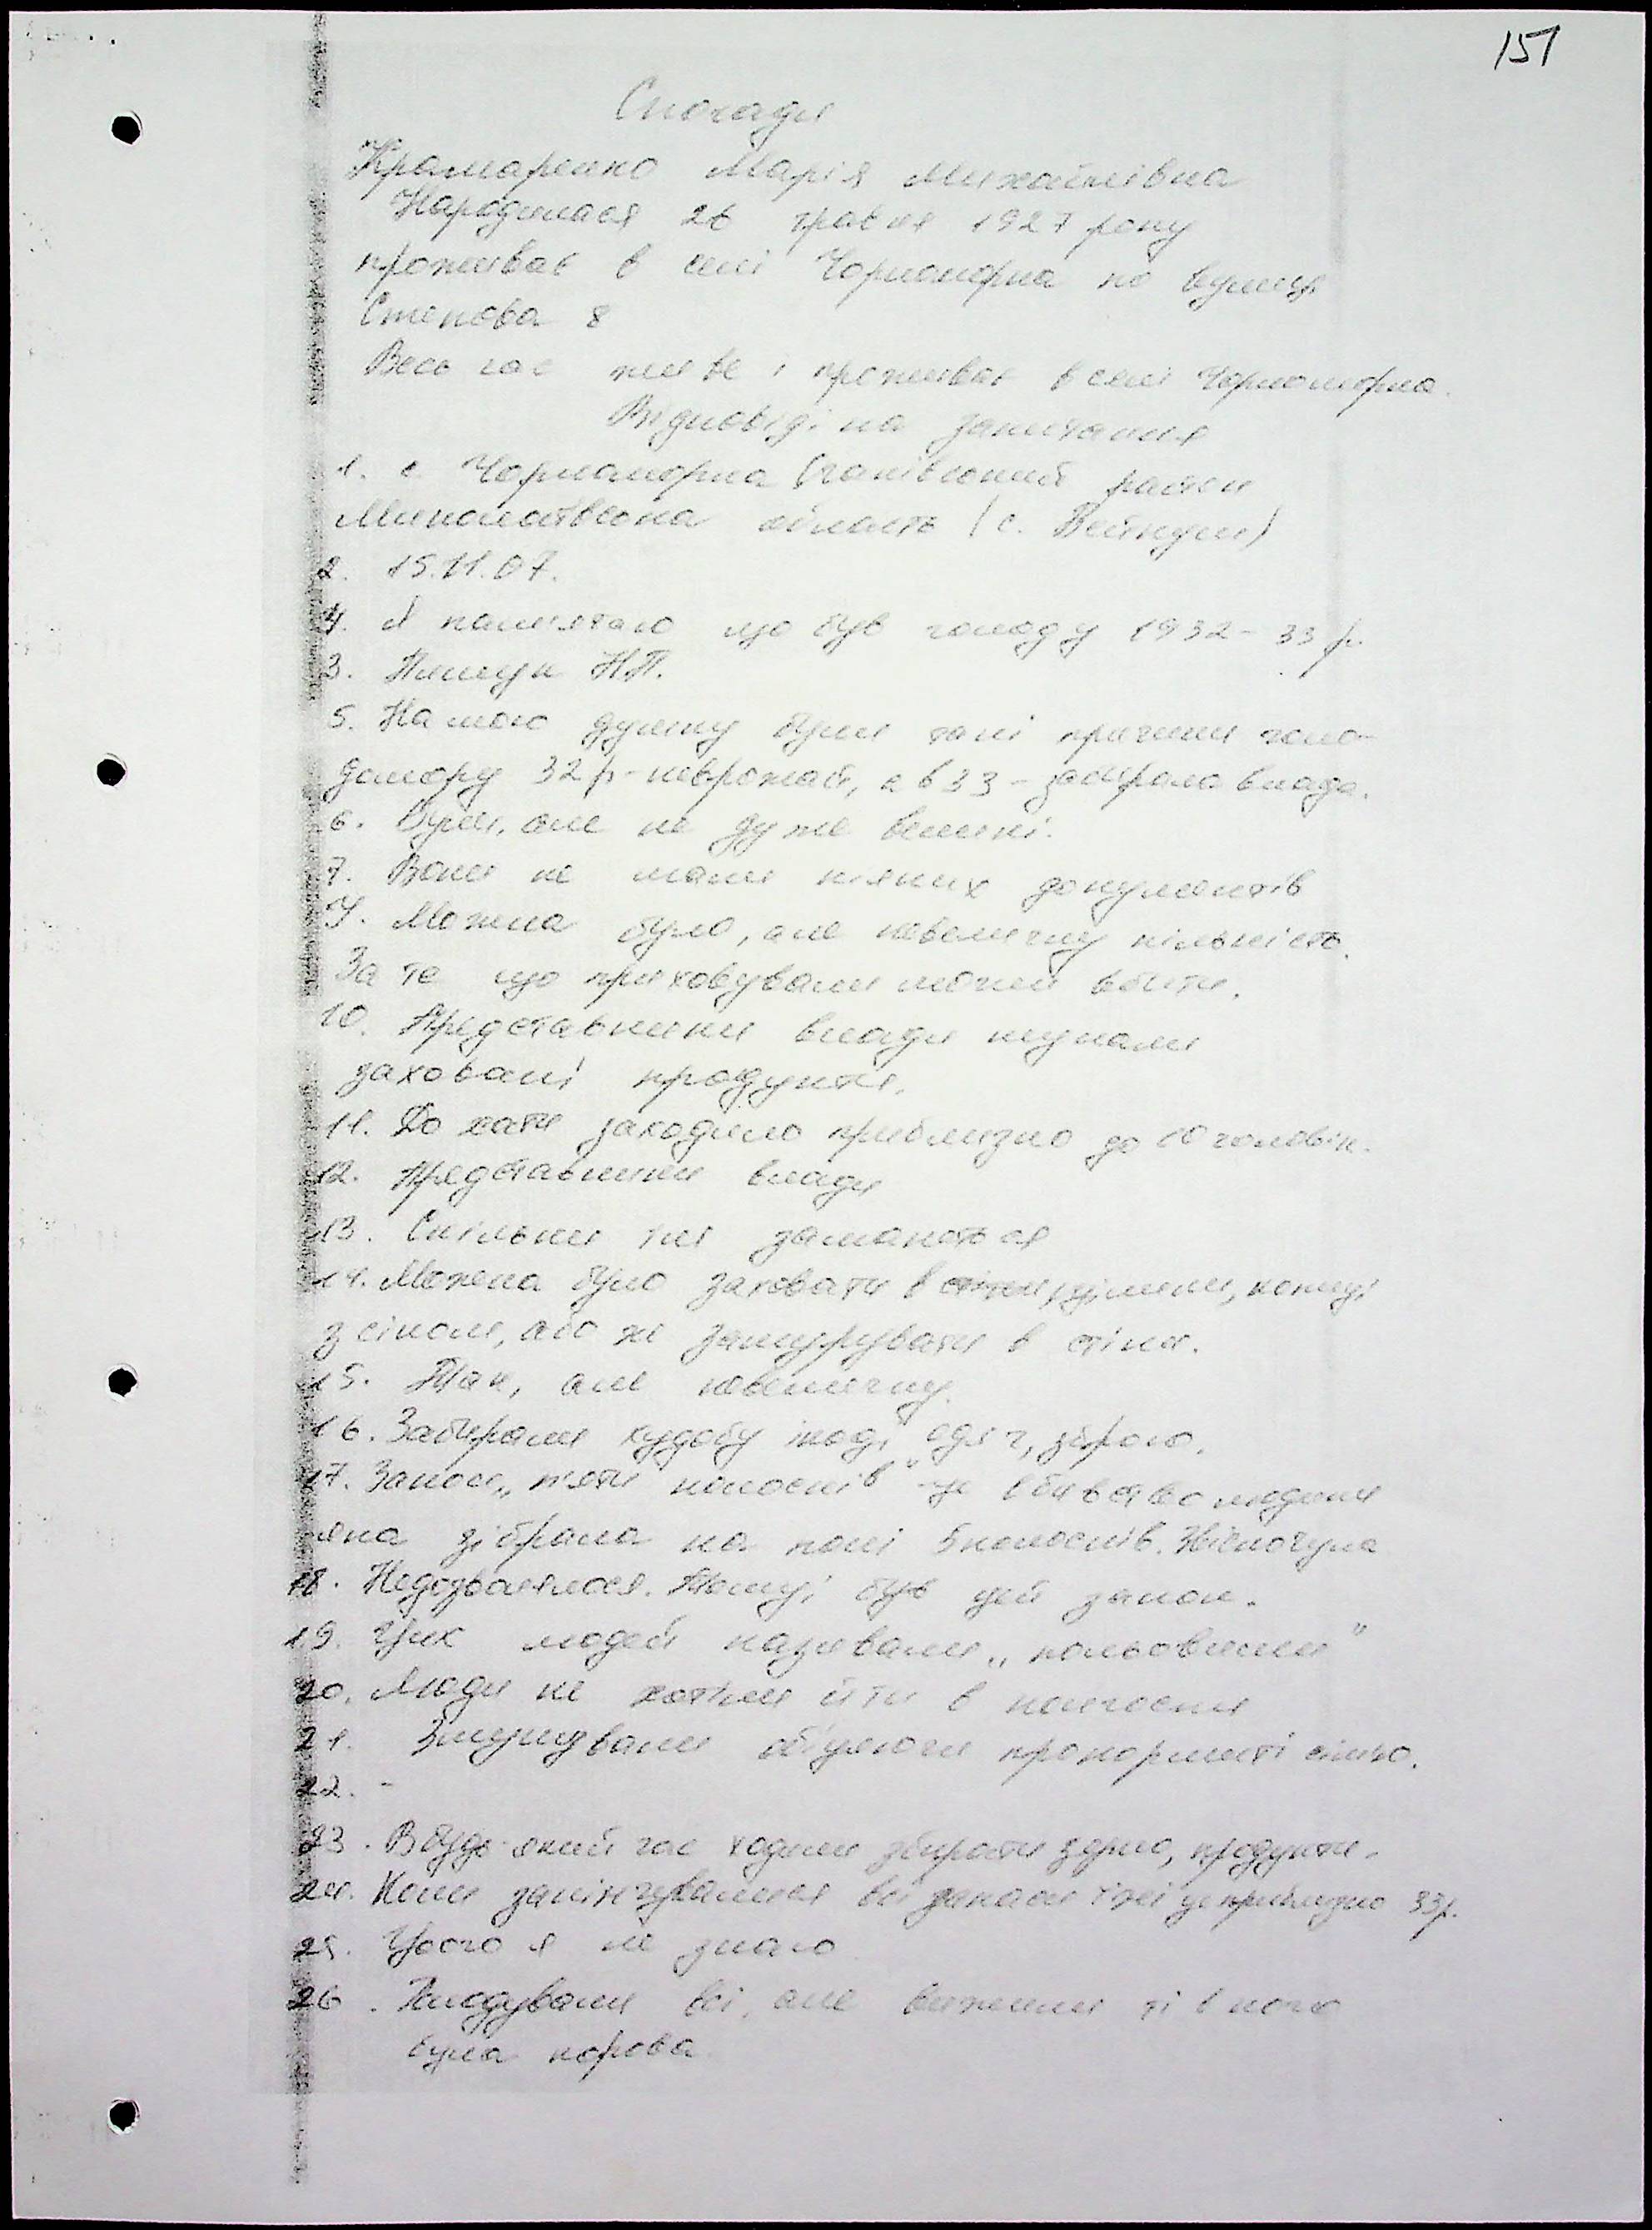 151
Спогади
Крамаренко Марія Михайлівна
Народилася 26 травня 1927 року
проживає в селі Чорноморка по вулиці
Степова 8
Весь час жив і проживає в селі Чорноморка.
Відповіді на запитання
1. с Чорноморка Очаківський район
Миколаївська область (с.
2. 15.11.07.
4. Я памʼятаю що був голод у 1932-33 р.
3. Н.П.
5. На мою думку були такі причини голо-
домору 32 р - неврожай, а в 33 - забирала влада.
6. Були, але не дуже великі.
7. Вони не мали ніяких документів
9. Можна було, але невеличку кількість.
За те що приховували могли вбити.
10. Представники влади шукали
заховані продукти.
11. До хати заходило приблизно до 10 чоловік.
12. Представники влади
13. Скільки їм заманеться
14. Можна було заховати в копиці
з сіном, або ж замурувати в стіни.
15. Так, але невеличку.
16. Забирали худобу іноді одяг, зброю.
17. Закон „пʼяти колосків" - це вбивство людини
яка зібрала на полі 5 колосків.
18. Недозволялося. Тому і був цей закон.
19. Цих людей називали „польовими"
20. Люди не хотіли йти в колгоспи
21. Змушували обіцяючи прокормити сімʼю.
22. -
23. В будь-який час ходили збирати зерно, продукти.
24. Коли закінчувалися всі запаси їжі це приблизно 33р.
25. Цього я не знаю
26. Голодували всі, але вижили ті в кого
була корова.